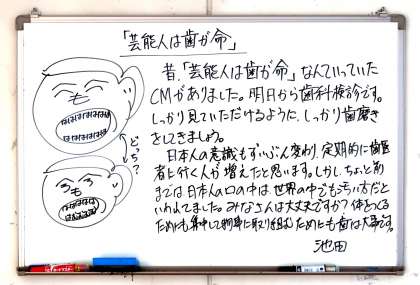 「芸能人は歯が命」
昔、「芸能人は歯が命」なんていっていた
CMがありました。明日から歯科検診です。
しっかり見ていただけるように、しっかり歯磨き
をしてきましょう。
日本人の意識もずいぶん変わり、定期的に歯医
者に行く人が増えたと思います。しかし、ちょっと前
までは日本人の口の中は世界の中でも汚い方だと
いわれてました。みなさんは大丈夫ですか？体をつくる
ためにも集中して物事に取り組むためにも歯は大事です。
池田
どっち？